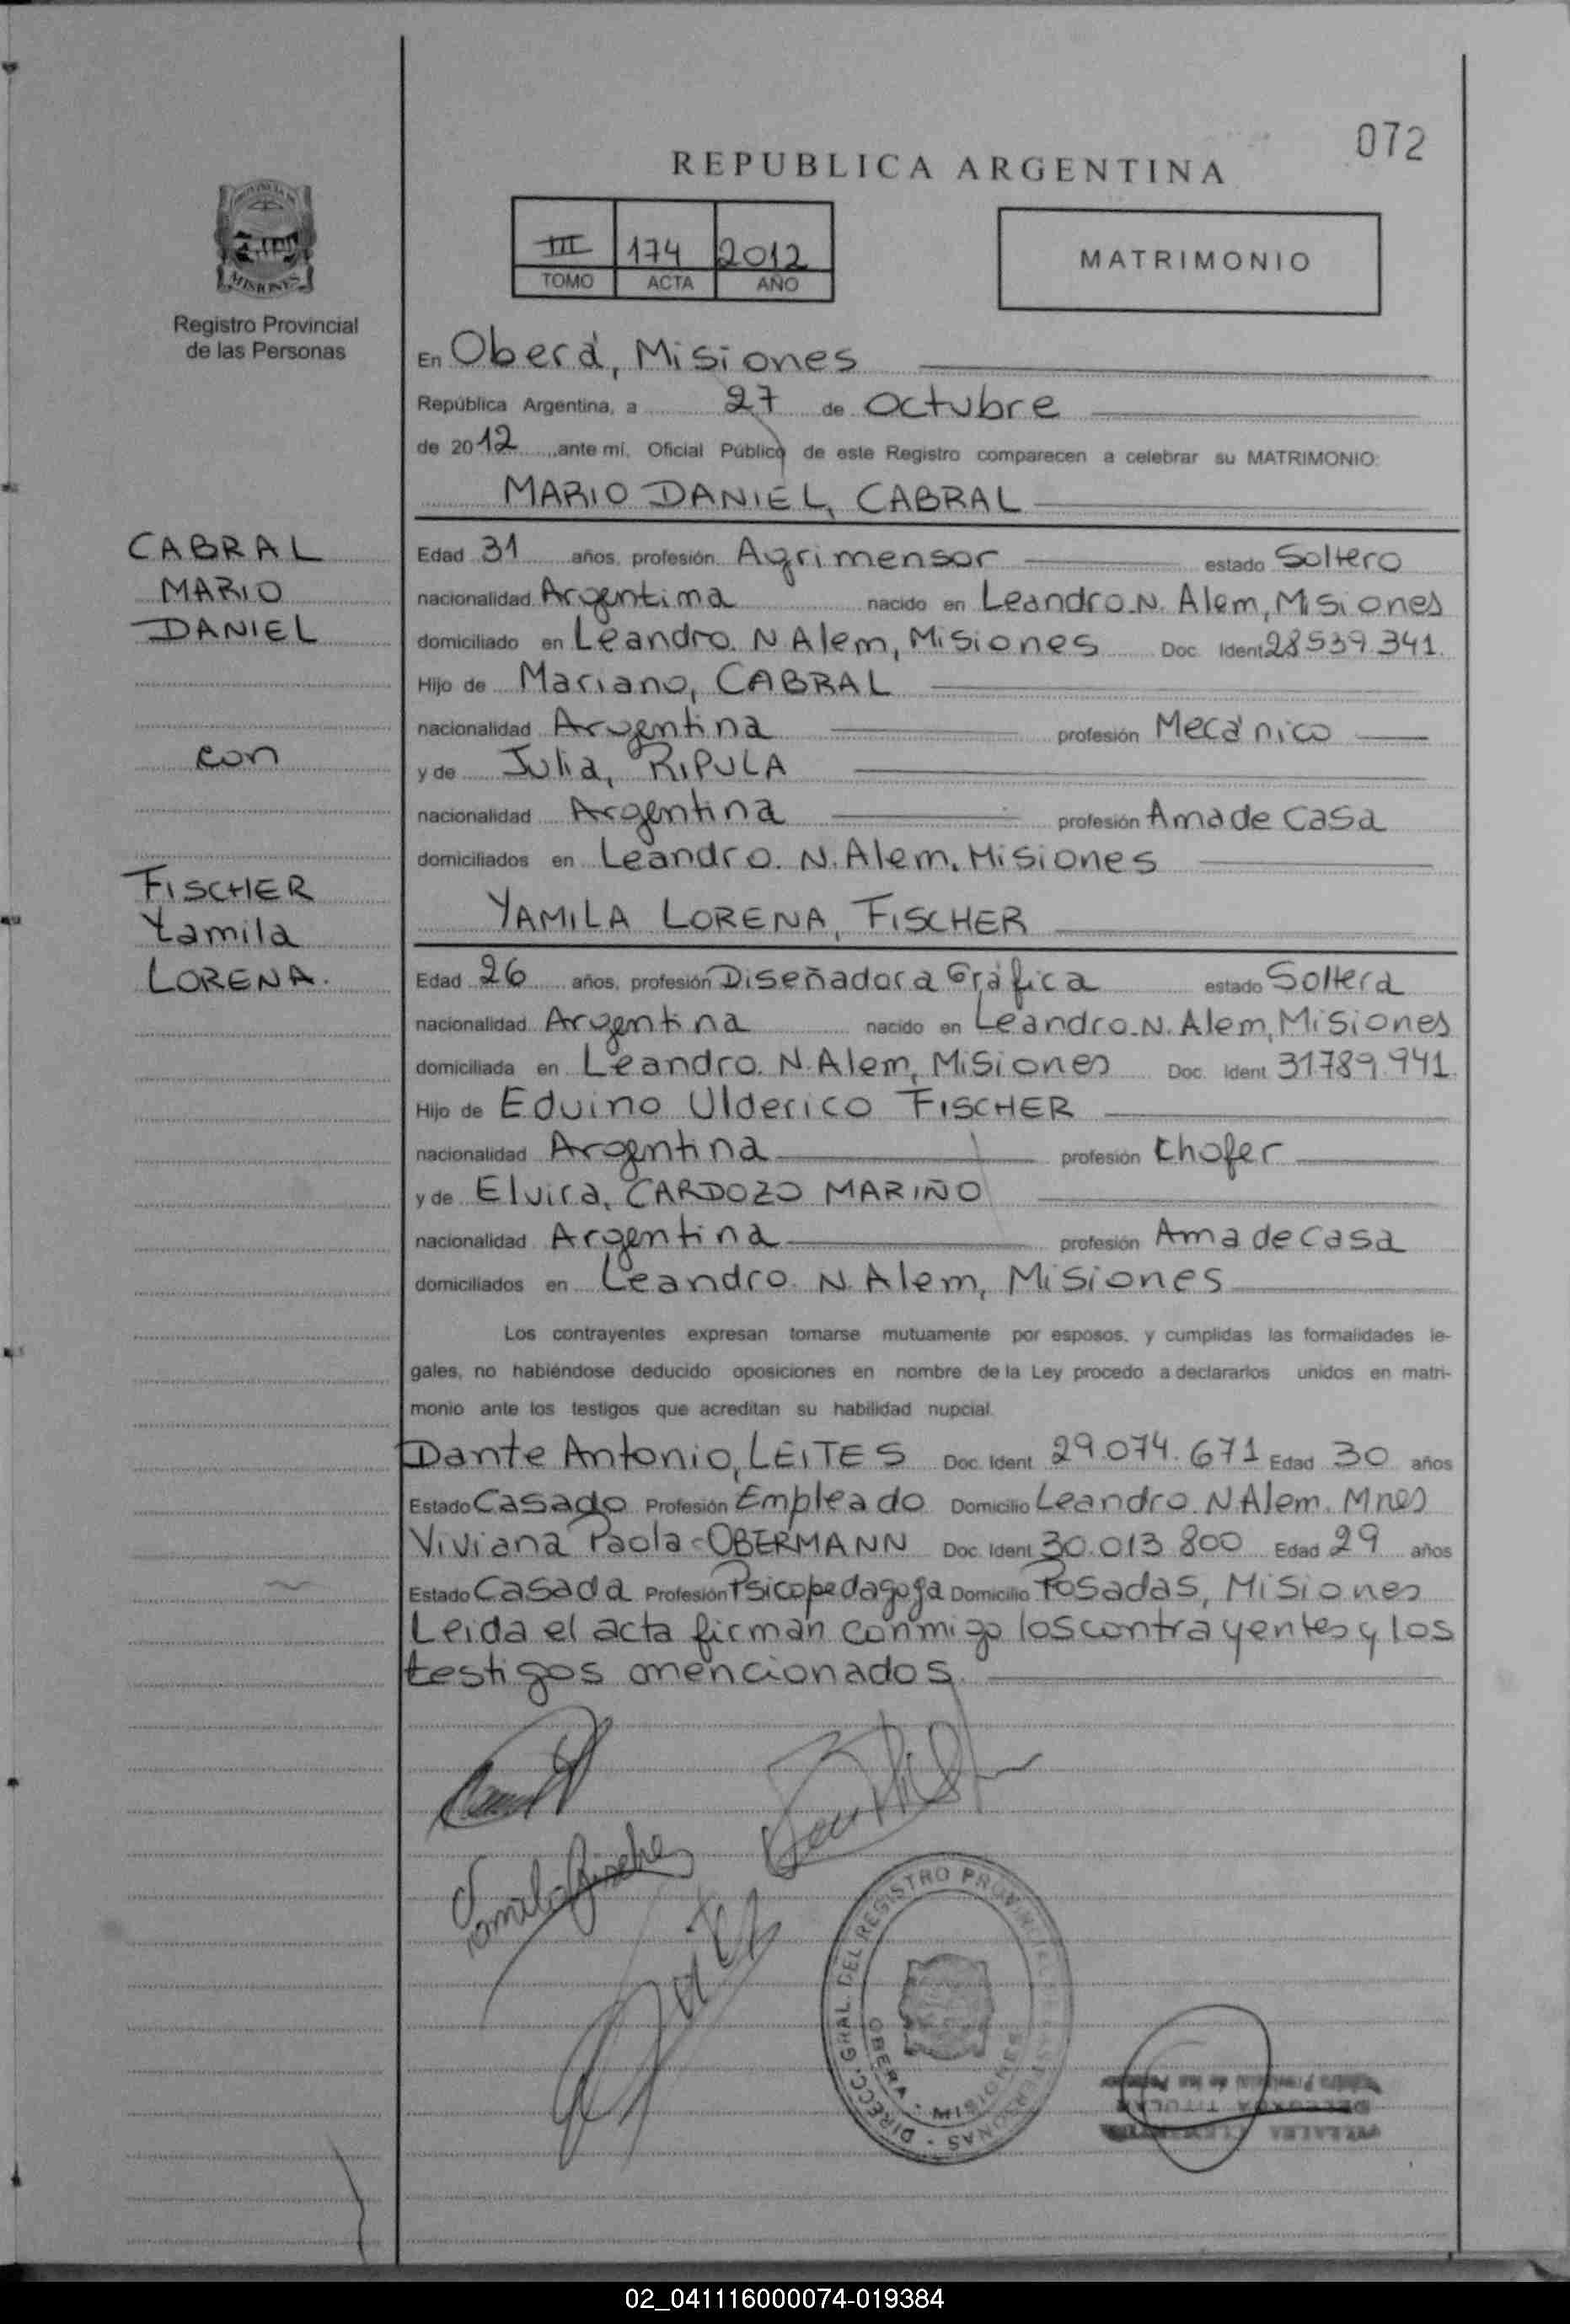 072
REPUBLICA ARGENTINA
PROVINCIA DE
MISIONES
Registro Provincial
de las Personas
III 174 2012
TOMO ACTA AÑO
MATRIMONIO
En Oberá, Misiones
República Argentina, a 27 de Octubre
de 2012 ante mí, Oficial Público de este Registro comparecen a celebrar su MATRIMONIO:
MARIO DANIEL, CABRAL
CABRAL
MARIO
DANIEL
con
FISCHER
Yamila
LORENA.
Edad 31 años, profesión Agrimensor estado Soltero
nacionalidad Argentina nacido en Leandro.N. Alem, Misiones
domiciliado en Leandro. N Alem, Misiones Doc. Ident 28539.341.
Hijo de Mariano, CABRAL
nacionalidad Argentina profesión Mecánico
y de Julia, RIPULA
nacionalidad Argentina profesión Ama de Casa
domiciliados en Leandro. N. Alem. Misiones
YAMILA LORENA, FISCHER
Edad 26 años, profesión Diseñadora Gráfica estado Soltera
nacionalidad Argentina nacido en Leandro.N. Alem, Misiones
domiciliada en Leandro. N. Alem, Misiones Doc. Ident 31789.941.
Hijo de Eduino Ulderico FISCHER
nacionalidad Argentina profesión Chofer
y de Elvira, CARDOZO MARIÑO
nacionalidad Argentina profesión Ama de casa
domiciliados en Leandro. N. Alem, Misiones
Los contrayentes expresan tomarse mutuamente por esposos, y cumplidas las formalidades le-
gales, no habiéndose deducido oposiciones en nombre de la Ley procedo a declararlos unidos en matri-
monio ante los testigos que acreditan su habilidad nupcial.
Dante Antonio, LEITES Doc. Ident 29.074.671 Edad 30 años
Estado Casado Profesión Empleado Domicilio Leandro. N Alem. Mnes
Viviana Paola OBERMANN Doc. Ident 30.013.800 Edad 29 años
Estado Casada Profesión Psicopedagoga Domicilio Posadas, Misiones
Leida el acta firman conmigo los contrayentes y los
testigos mencionados.
Yamila Fischer
DIRECC. GRAL. DEL REGISTRO PROVINCIAL DE LAS PERSONAS
OBERA - MISIONES
DELEGADA TITULAR
02_041116000074-019384